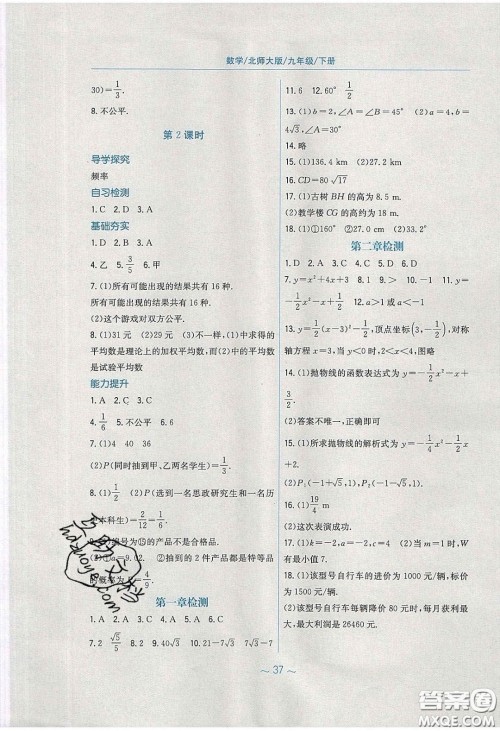 数学/北师大版/九年级/下册
30)=1/3.
8.不公平.
第2课时
导学探究
频率
自习检测
1.C 2.D 3.A
基础夯实
4.乙 5.3/5 6.甲
7.(1)所有可能出现的结果共有16种.
所有可能出现的结果共有16种.
(2)这个游戏对双方公平.
8.(1)31元 (2)30元 (3)不一样,(1)中求得的
平均数是理论上的加权平均数,而(2)中的平均数
是试验平均数
能力提升
1.A 2.C 3.A
4.1/6 5.不公平 6.6
7.(1)4 40 36
(2)P(同时抽到甲,乙两名学生)=1/6.
8.(1)1/2 (2)P(选到一名思政研究生和一名历
史本科生)=2/12=1/6.
9.(1)编号为⑮的产品不是合格品.
(2)①a=9.02. ②抽到的2件产品都是特等品
的概率为P=4/9.
第一章检测
1.A 2.√5/5 3.D 4.A 5.D 6.C 7.2-√3
8.√5 9.√3/2 10.21-7√3 7√3-7
11.6 12.60°
13.(1)b=2,∠A=∠B=45° (2)a=4,b=
4√3,∠A=30°
14.略
15.(1)136.4 km (2)27.2 km
16.CD=80√17
17.(1)古树BH的高为8.5 m.
(2)教学楼CG的高为18.0 m.
18.(1)①160° ②27.0 cm (2)33.2°
第二章检测
1.D 2.D 3.C 4.A 5.D 6.D
7.y=x²+4x+3 8.1 9.> 10.-1 11.y=
-1/2x²-x+3/2 12.a>1或a<-1
13.y=1/2(x-3)²-1/2,顶点坐标(3,-1/2),对称
轴方程x=3,当y<0时,2<x<4,图略
14.(1)抛物线的函数表达式为y=-1/2x²-x+
3/2.
(2)答案不唯一,正确即可
15.(1)所求抛物线的解析式为y=-1/4x²-1/2x
+2.
(2)P₁(-1-√5,1),P₂(-1+√5,1).
16.(1)19/4 m
(2)这次表演成功.
17.(1)b=-2,a=-1,c=-2 (2)当m=1时,W
有最小值7.
18.(1)该型号自行车的进价为1000元/辆,标价为
1500元/辆.
(2)该型号自行车每辆降价80元时,每月获利最
大,最大利润是26460元.
~37~
答案圈
MXQE.COM